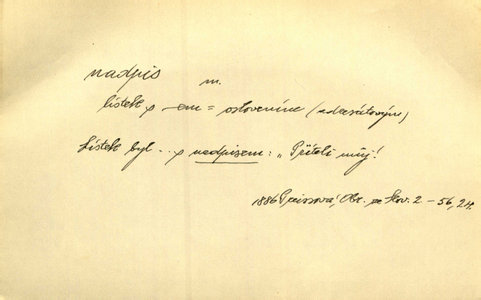 nadpis m.
lístek s -em = oslovením (adresátovým)
Lístek byl .. s nadpisem: „Příteli můj!
1886 Preissová, Obr. ze Slov. 2 - 56, 24.